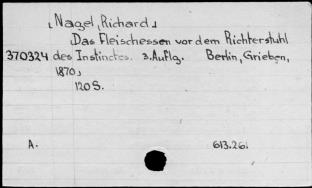 Nagel, Richard.
Das Fleischessen vor dem Richterstuhl
370324 des Instinctes. 3. Auflg. Berlin, Grieben,
1870.
120 S.
A. 613.26.